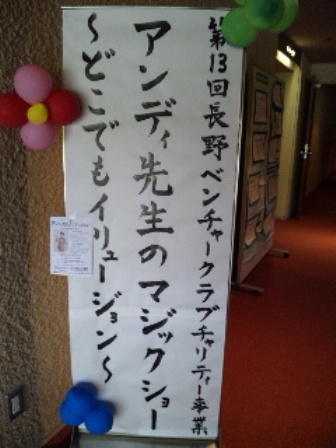 第13回長野ベンチャークラブチャリティー事業
アンディ先生のマジックショー
～どこでもイリュージョン～